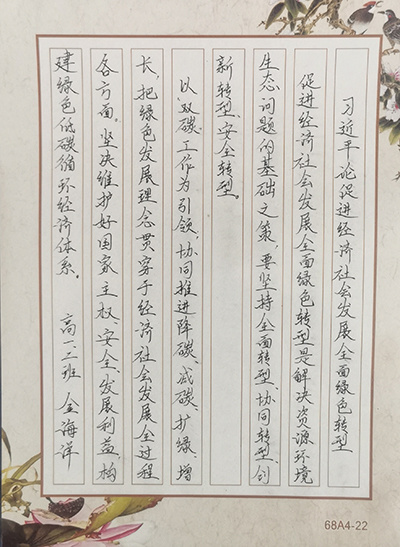 习近平论促进经济社会发展全面绿色转型
促进经济社会发展全面绿色转型是解决资源环境
生态问题的基础之策，要坚持全面转型、协同转型、创
新转型、安全转型。
以“双碳”工作为引领，协同推进降碳、减碳、扩绿、增
长，把绿色发展理念贯穿于经济社会发展全过程
各方面。坚决维护好国家主权、安全、发展利益，构
建绿色低碳循环经济体系。 高一、二班 金海洋
68A4-22